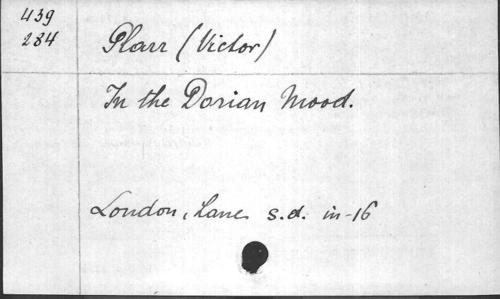 439
284
Plarr (Victor)
In the Dorian Mood.
London, Lane s.d. in-16